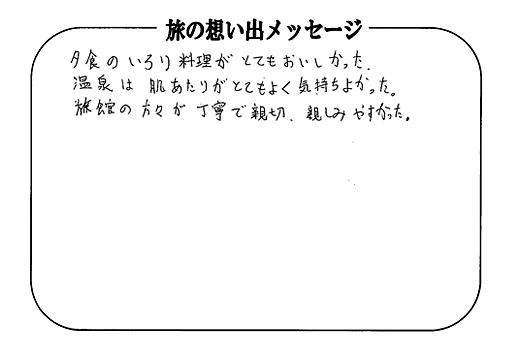 旅の想い出メッセージ
夕食のいろり料理がとてもおいしかった.
温泉は肌あたりがとてもよく気持ちよかった。
旅館の方々が丁寧で親切、親しみやすかった。